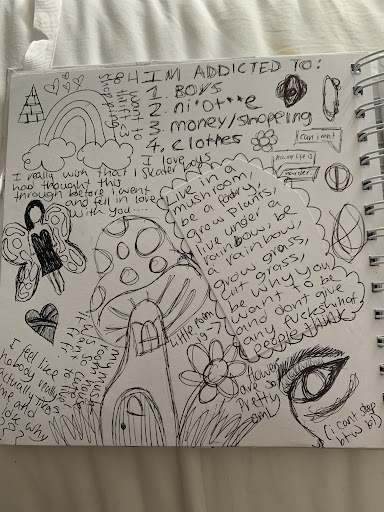 I'M ADDICTED TO:
1. BOYS
2. ni*ot**e
3. money/shopping
4. clothes
I love
skater boys
I want to
go
thrift
shopping
<3
I really wish that I
had thought this
through before I went
and fell in love
with you....
can i rent
harder
Live in a
mushroom,
be a fairy,
grow plants,
live under a
rainbow, be
a rainbow,
grow grass,
cut grass,
be why you
want to be
and dont give
any fucks what
people think
Little room
my mush
room
I feel like
nobody really
actually likes
me and
idk why
flowers
are so
pretty
oml
(i cant stop
btw lol)